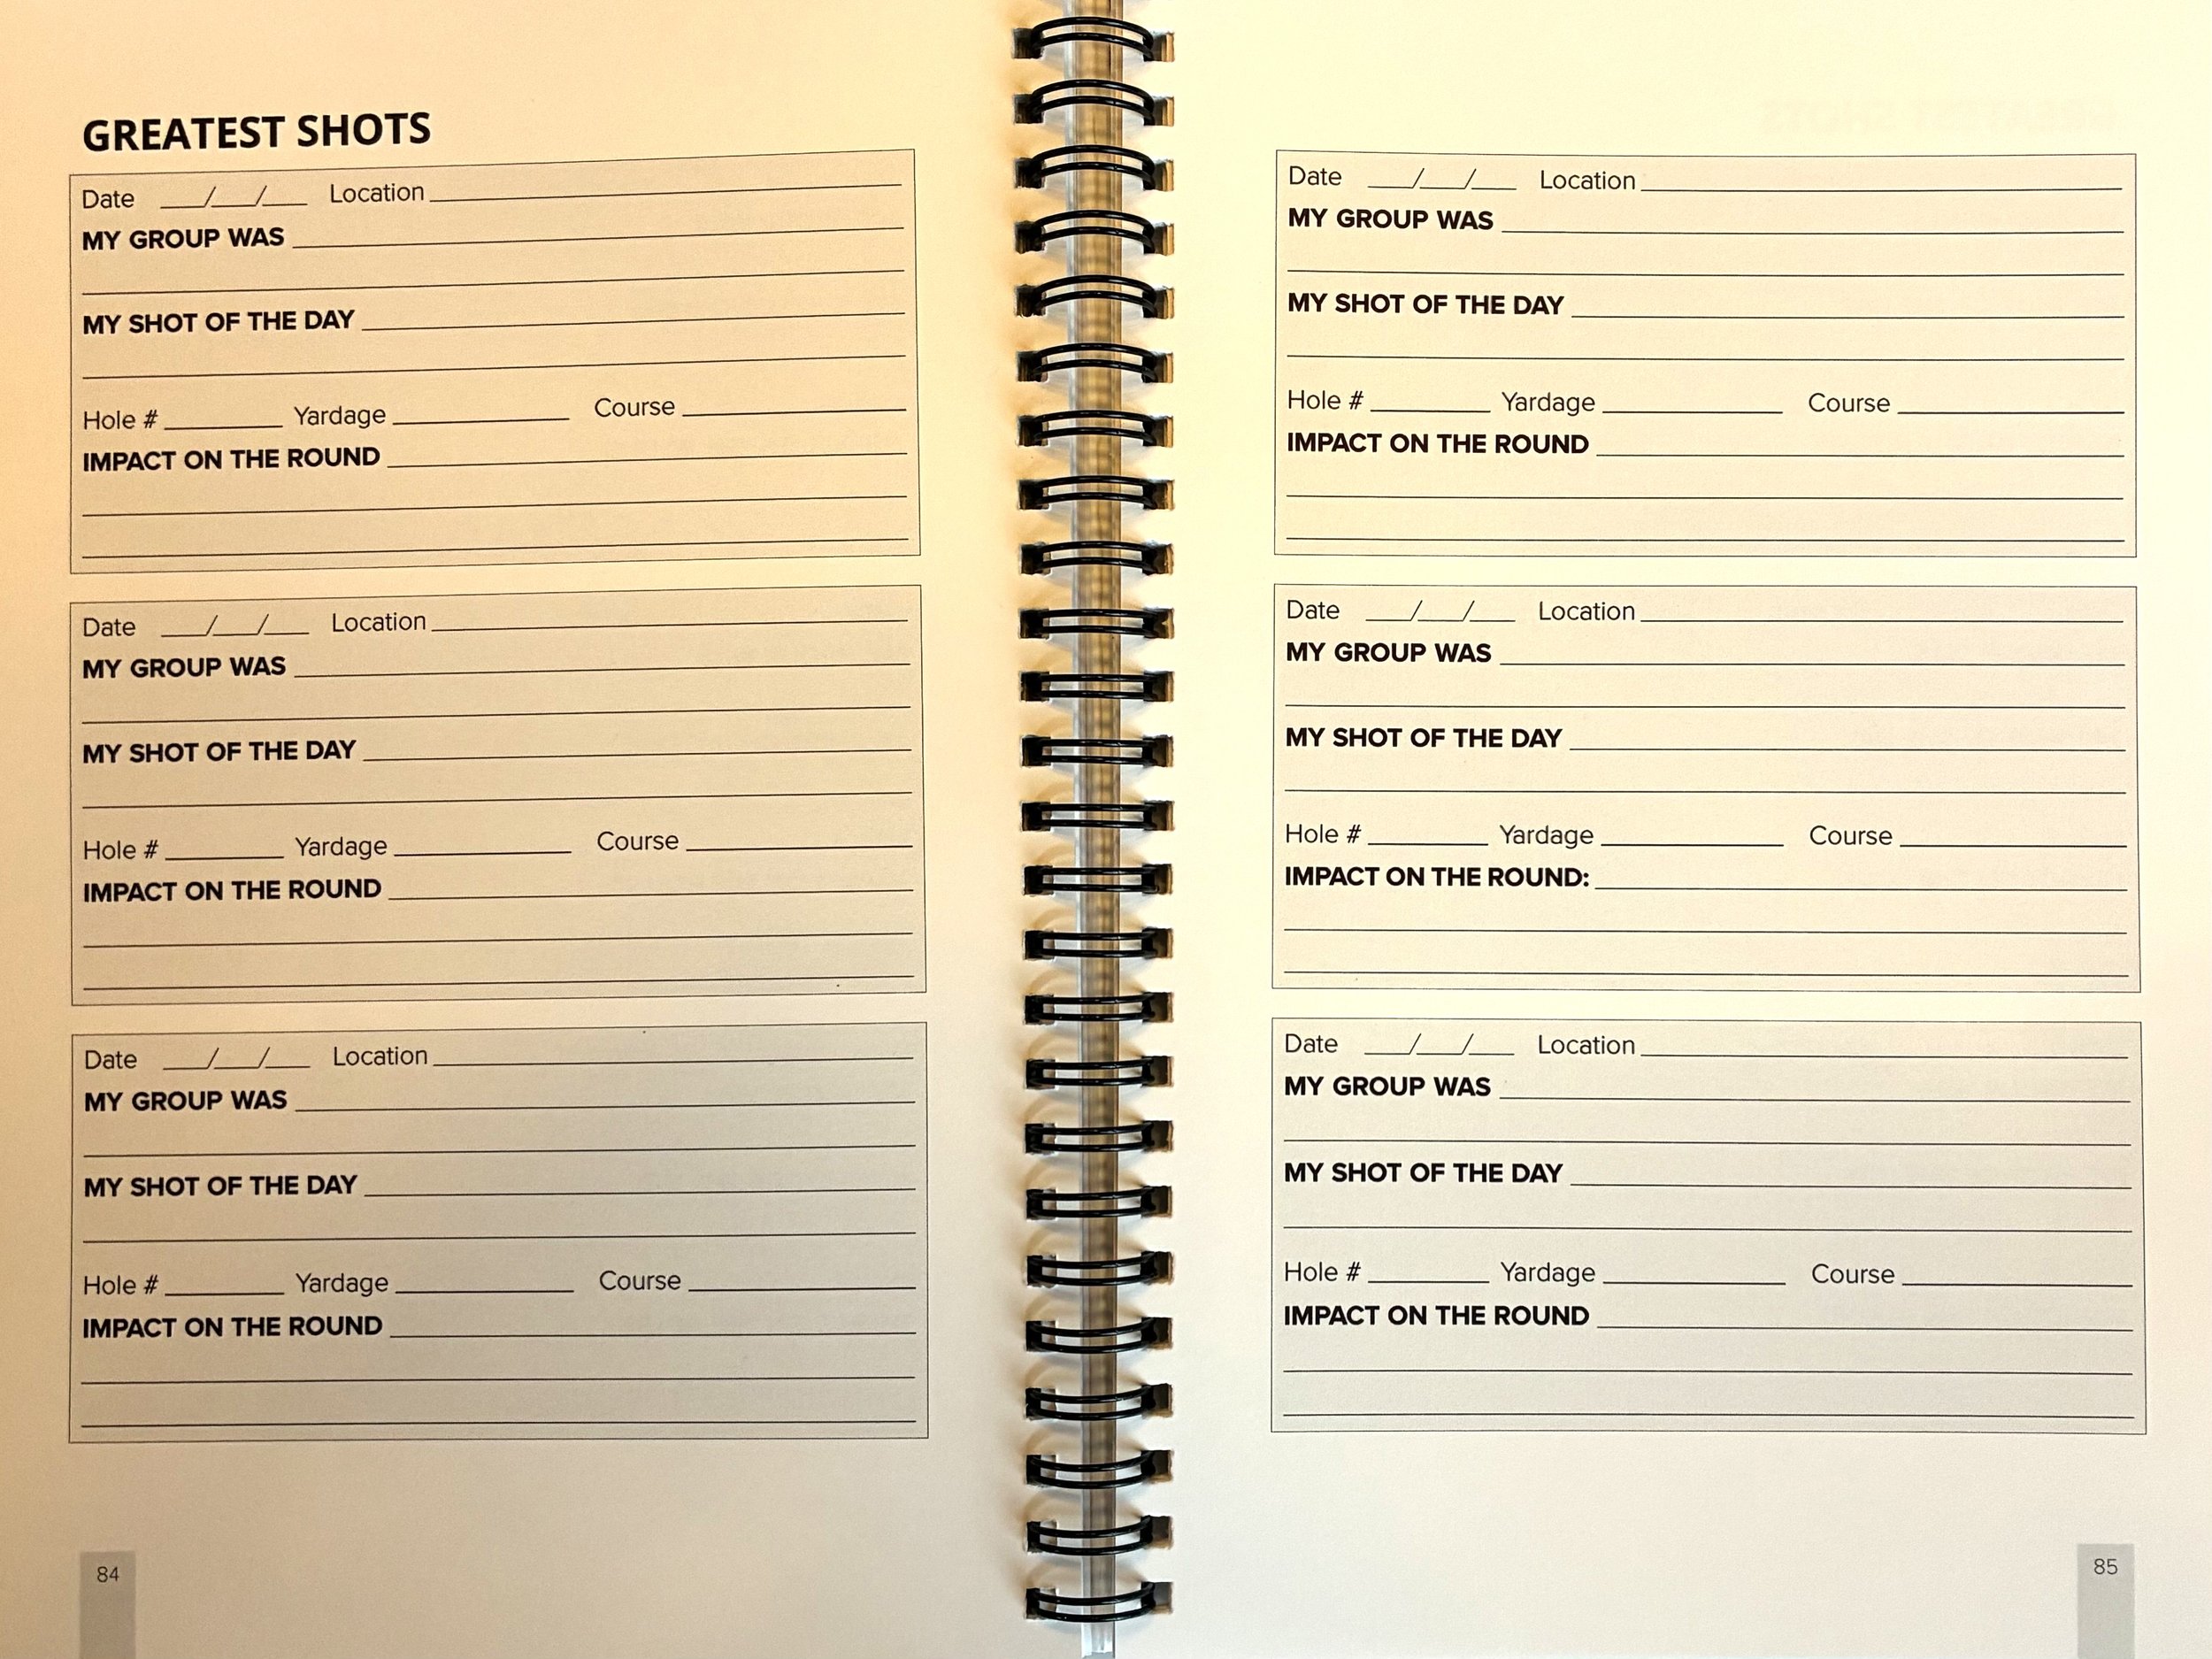 GREATEST SHOTS
Date ___/___/___ Location
MY GROUP WAS
MY SHOT OF THE DAY
Hole # Yardage Course
IMPACT ON THE ROUND
Date ___/___/___ Location
MY GROUP WAS
MY SHOT OF THE DAY
Hole # Yardage Course
IMPACT ON THE ROUND
Date ___/___/___ Location
MY GROUP WAS
MY SHOT OF THE DAY
Hole # Yardage Course
IMPACT ON THE ROUND
84
Date ___/___/___ Location
MY GROUP WAS
MY SHOT OF THE DAY
Hole # Yardage Course
IMPACT ON THE ROUND
Date ___/___/___ Location
MY GROUP WAS
MY SHOT OF THE DAY
Hole # Yardage Course
IMPACT ON THE ROUND:
Date ___/___/___ Location
MY GROUP WAS
MY SHOT OF THE DAY
Hole # Yardage Course
IMPACT ON THE ROUND
85